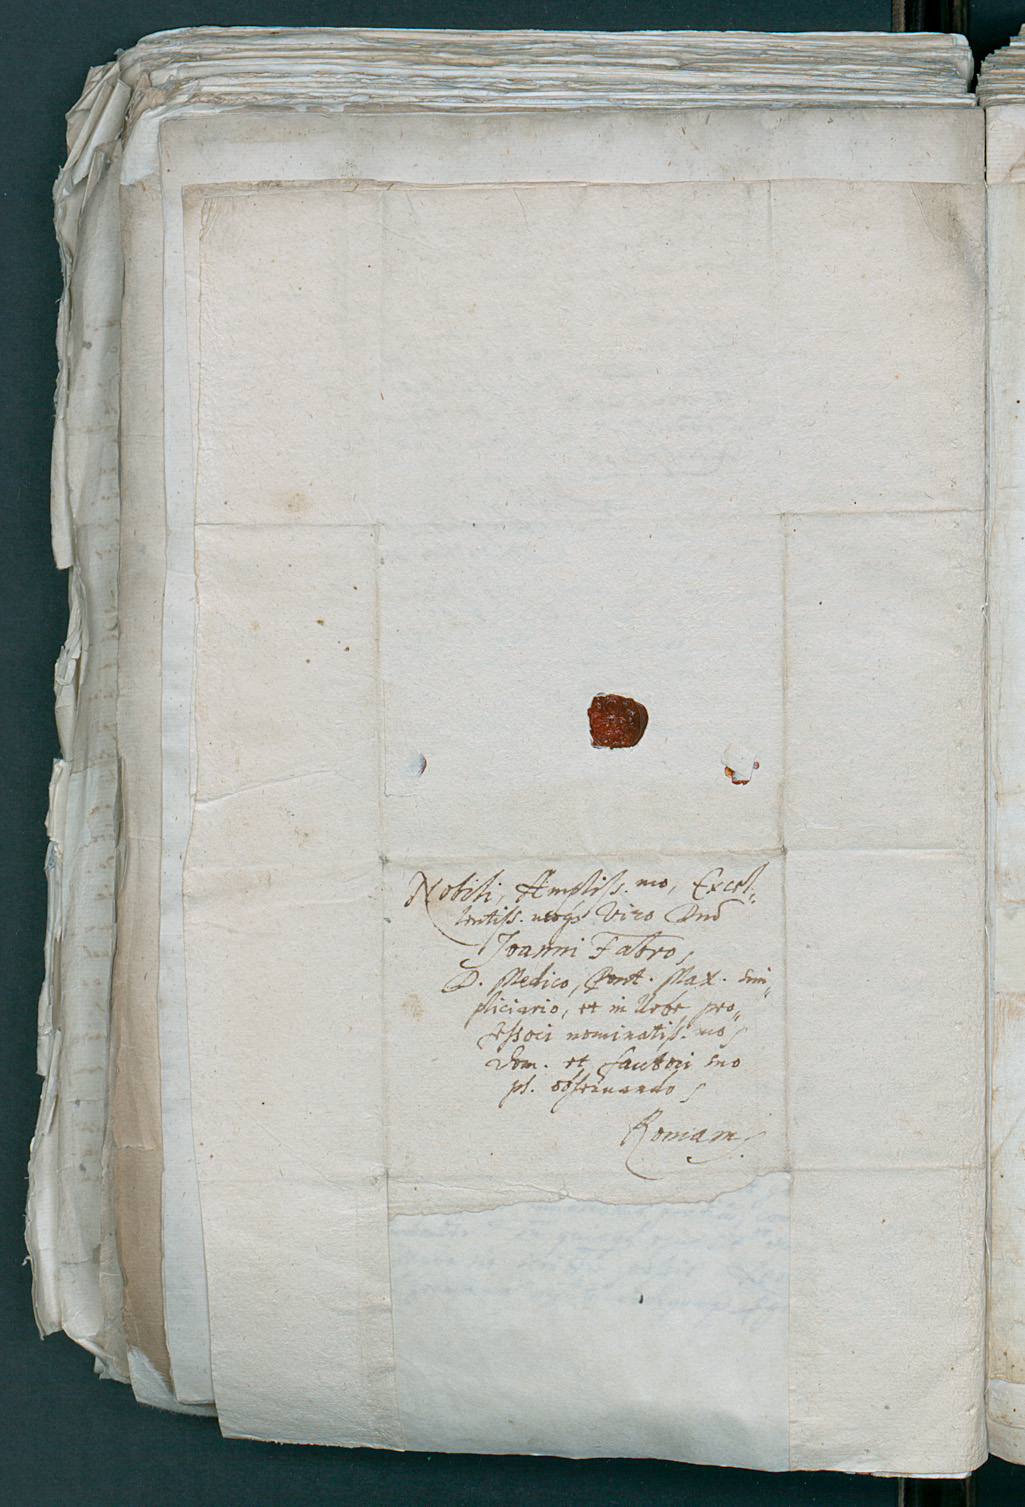 Nobili, Ampliss.mo, Excel„
lentiss. moq3 Viro Dnō
Joanni Fabro,
D. Medico, Pont. Max. sim„
pliciario, et in Urbe pro„
fessori nominatiss.mo,
Dom. et fautori suo
pl. obseruando,
Romam.